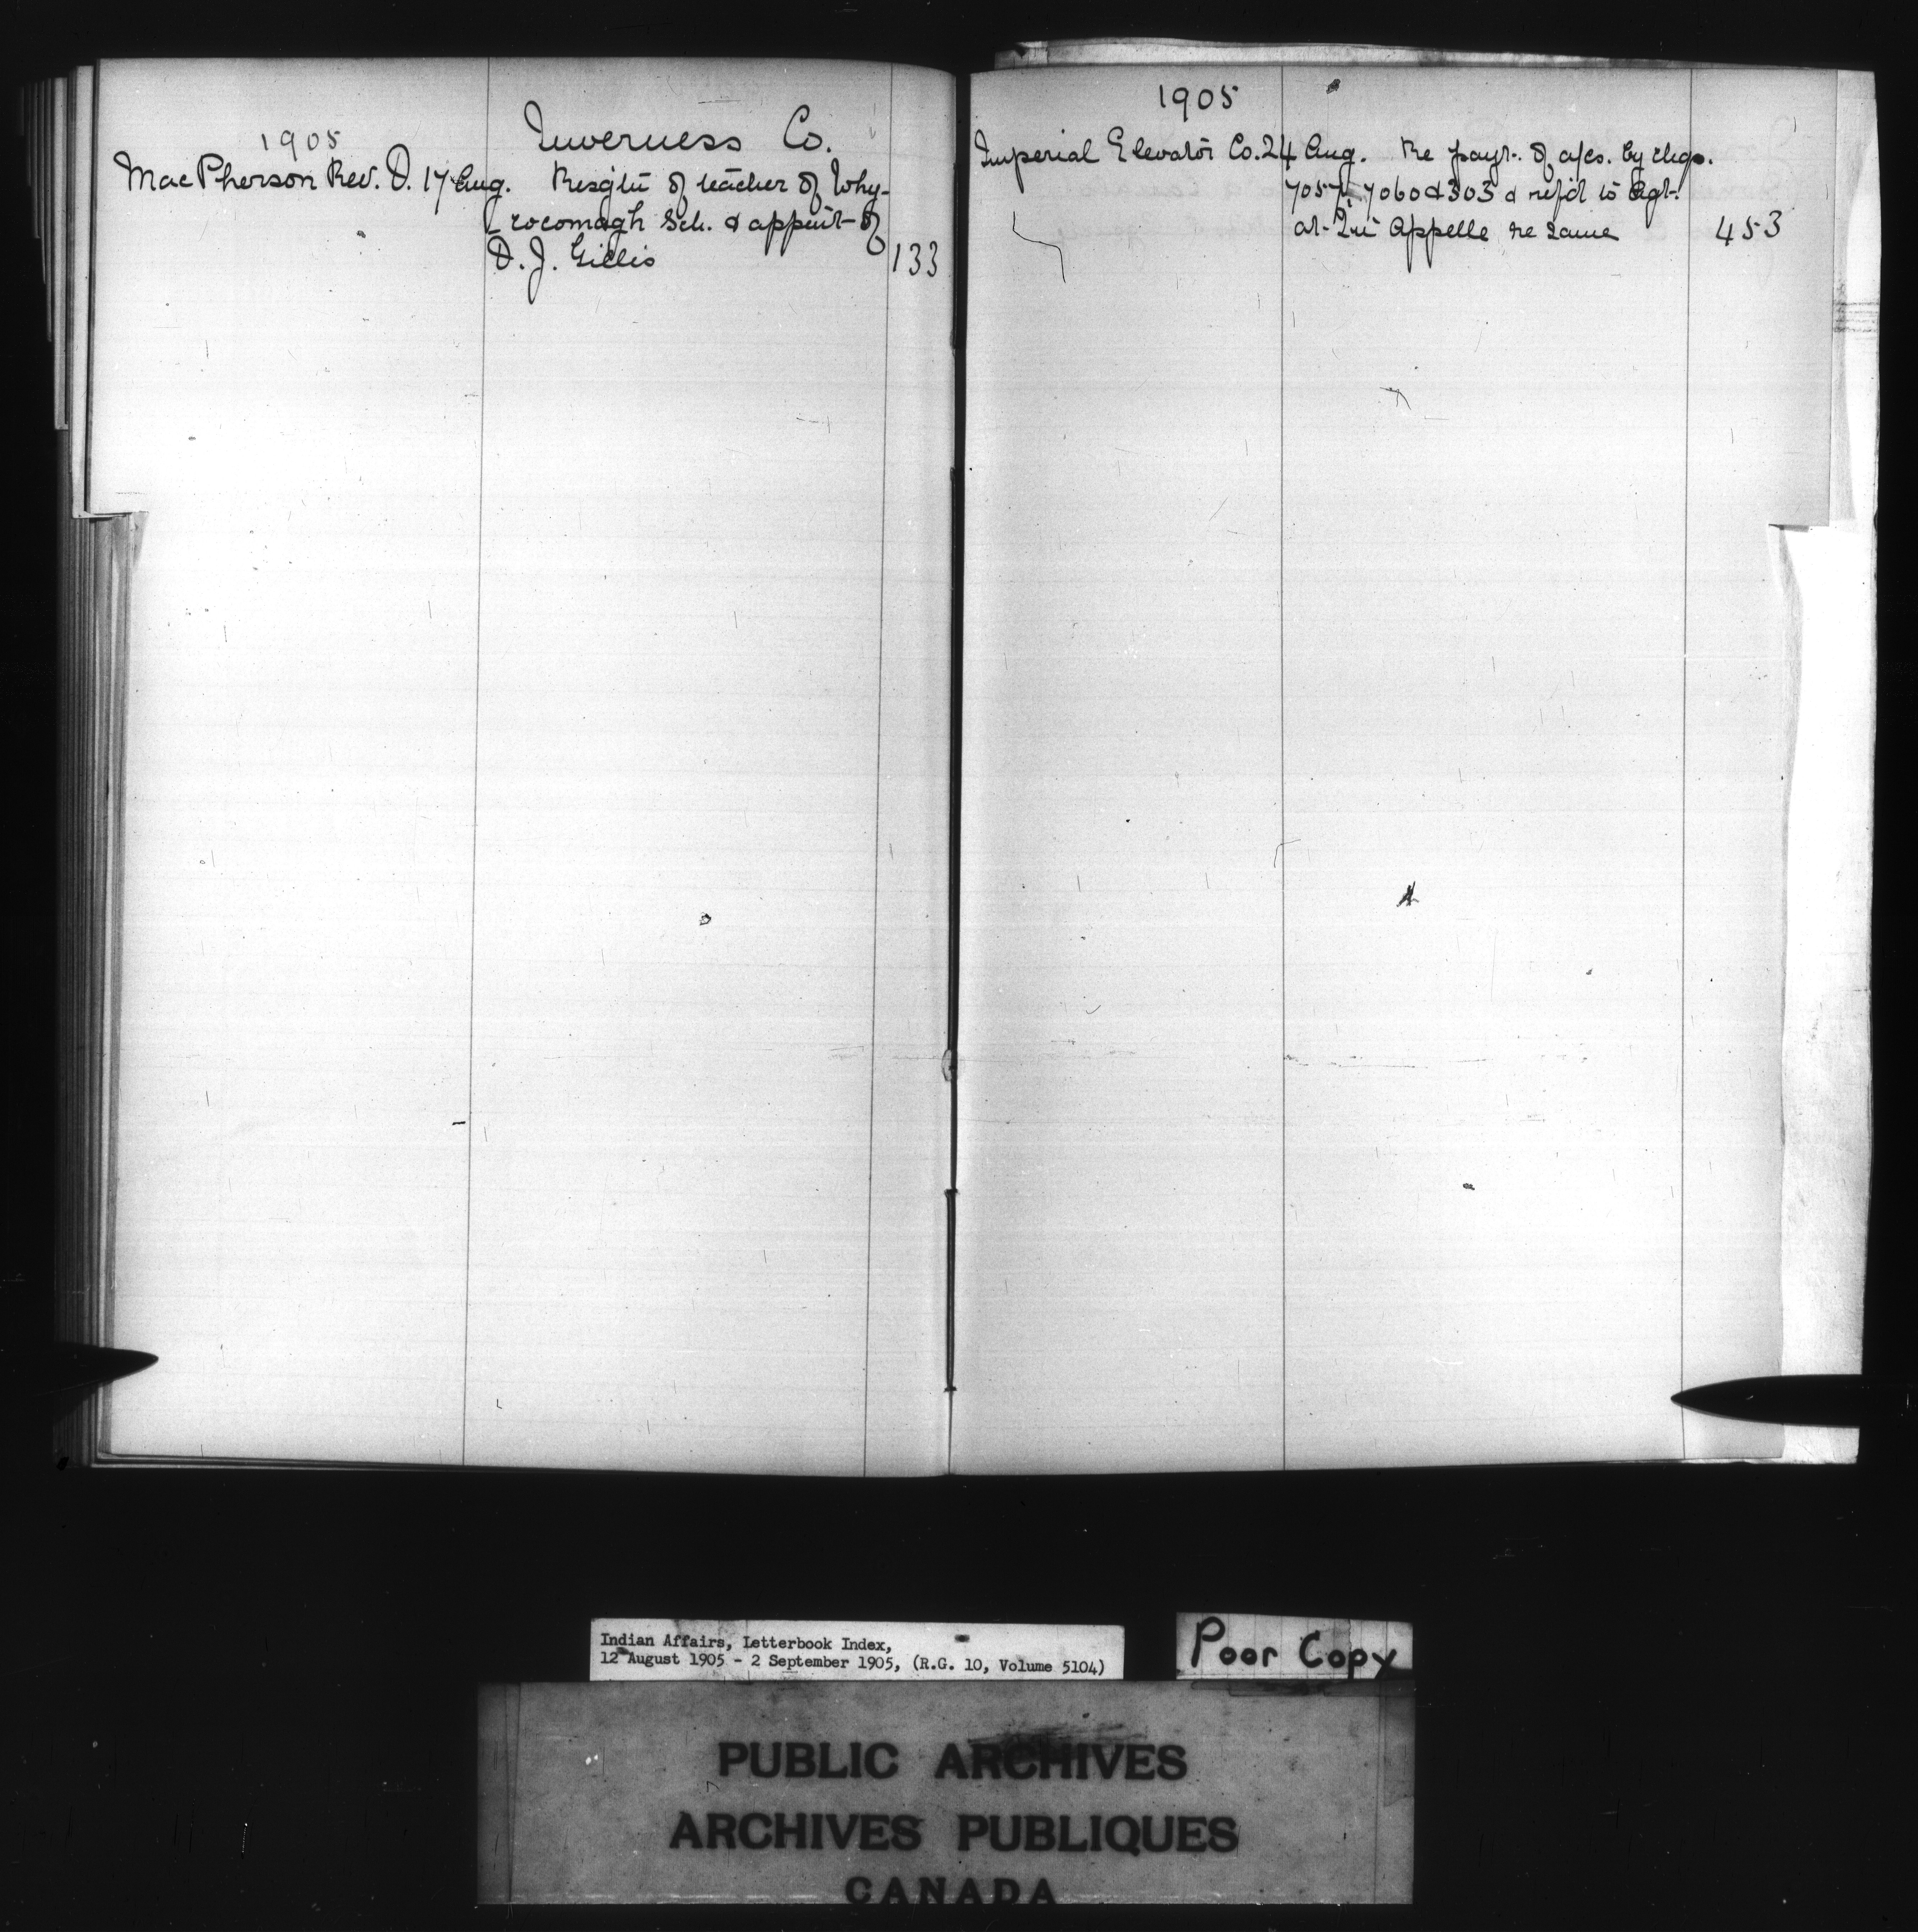 1905
Inverness Co.
MacPherson Rev. D. 17 Aug. Resg'tn of teacher of Why-
cocomagh Sch. & appmt of
D. J. Gillis 133
1905
Imperial Elevator Co. 24 Aug. Re payt. of a/cs. by chqs.
7057, 7060 & 303 & ref'd to Agt.
at Qu'Appelle re same 453
Indian Affairs, Letterbook Index,
12 August 1905 - 2 September 1905, (R.G. 10, Volume 5104)
Poor Copy
PUBLIC ARCHIVES
ARCHIVES PUBLIQUES
CANADA